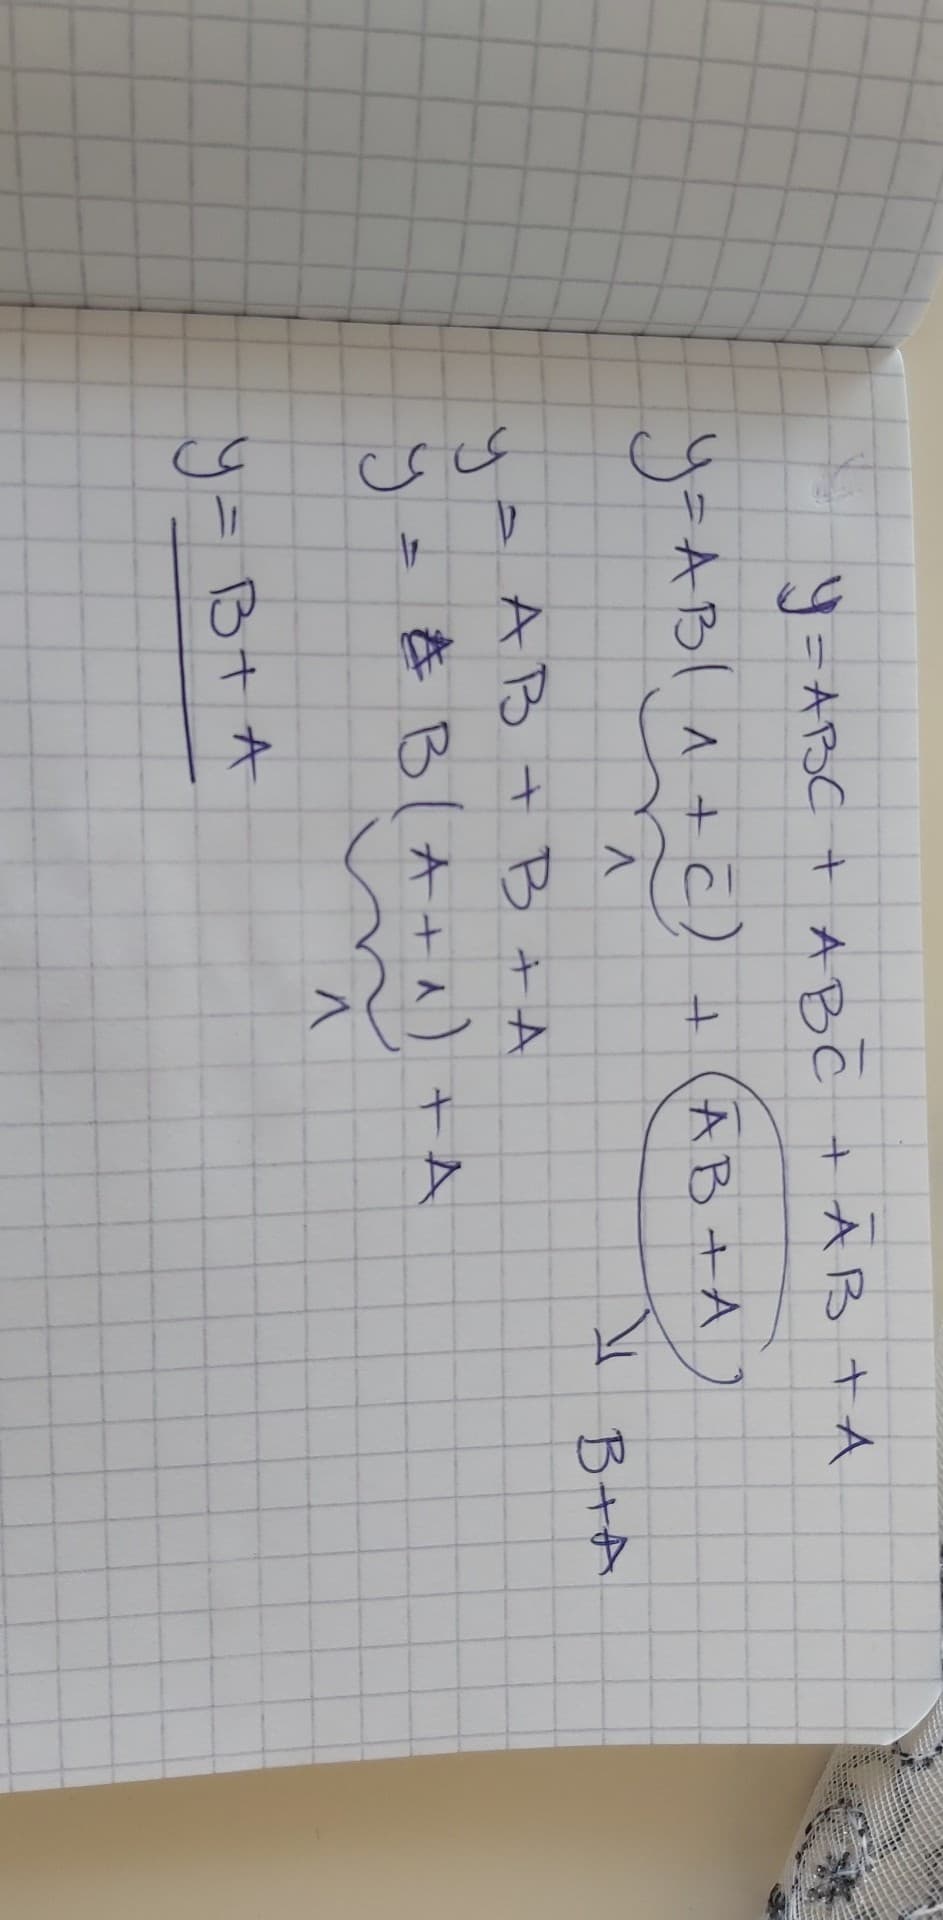 y = ABC + ABC̄ + ĀB + A
y = AB(1 + C̄) + ĀB + A
1
B + A
y = AB + B + A
y = B(A + 1) + A
1
y = B + A